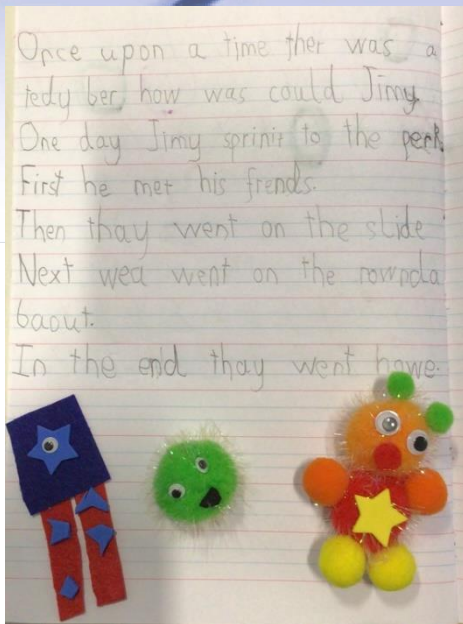 Once upon a time ther was a
tedy ber, how was could Jimy.
One day Jimy sprinit to the perk.
First he met his frends.
Then thay went on the slide
Next wea went on the rownda
baout.
In the end thay went howe.